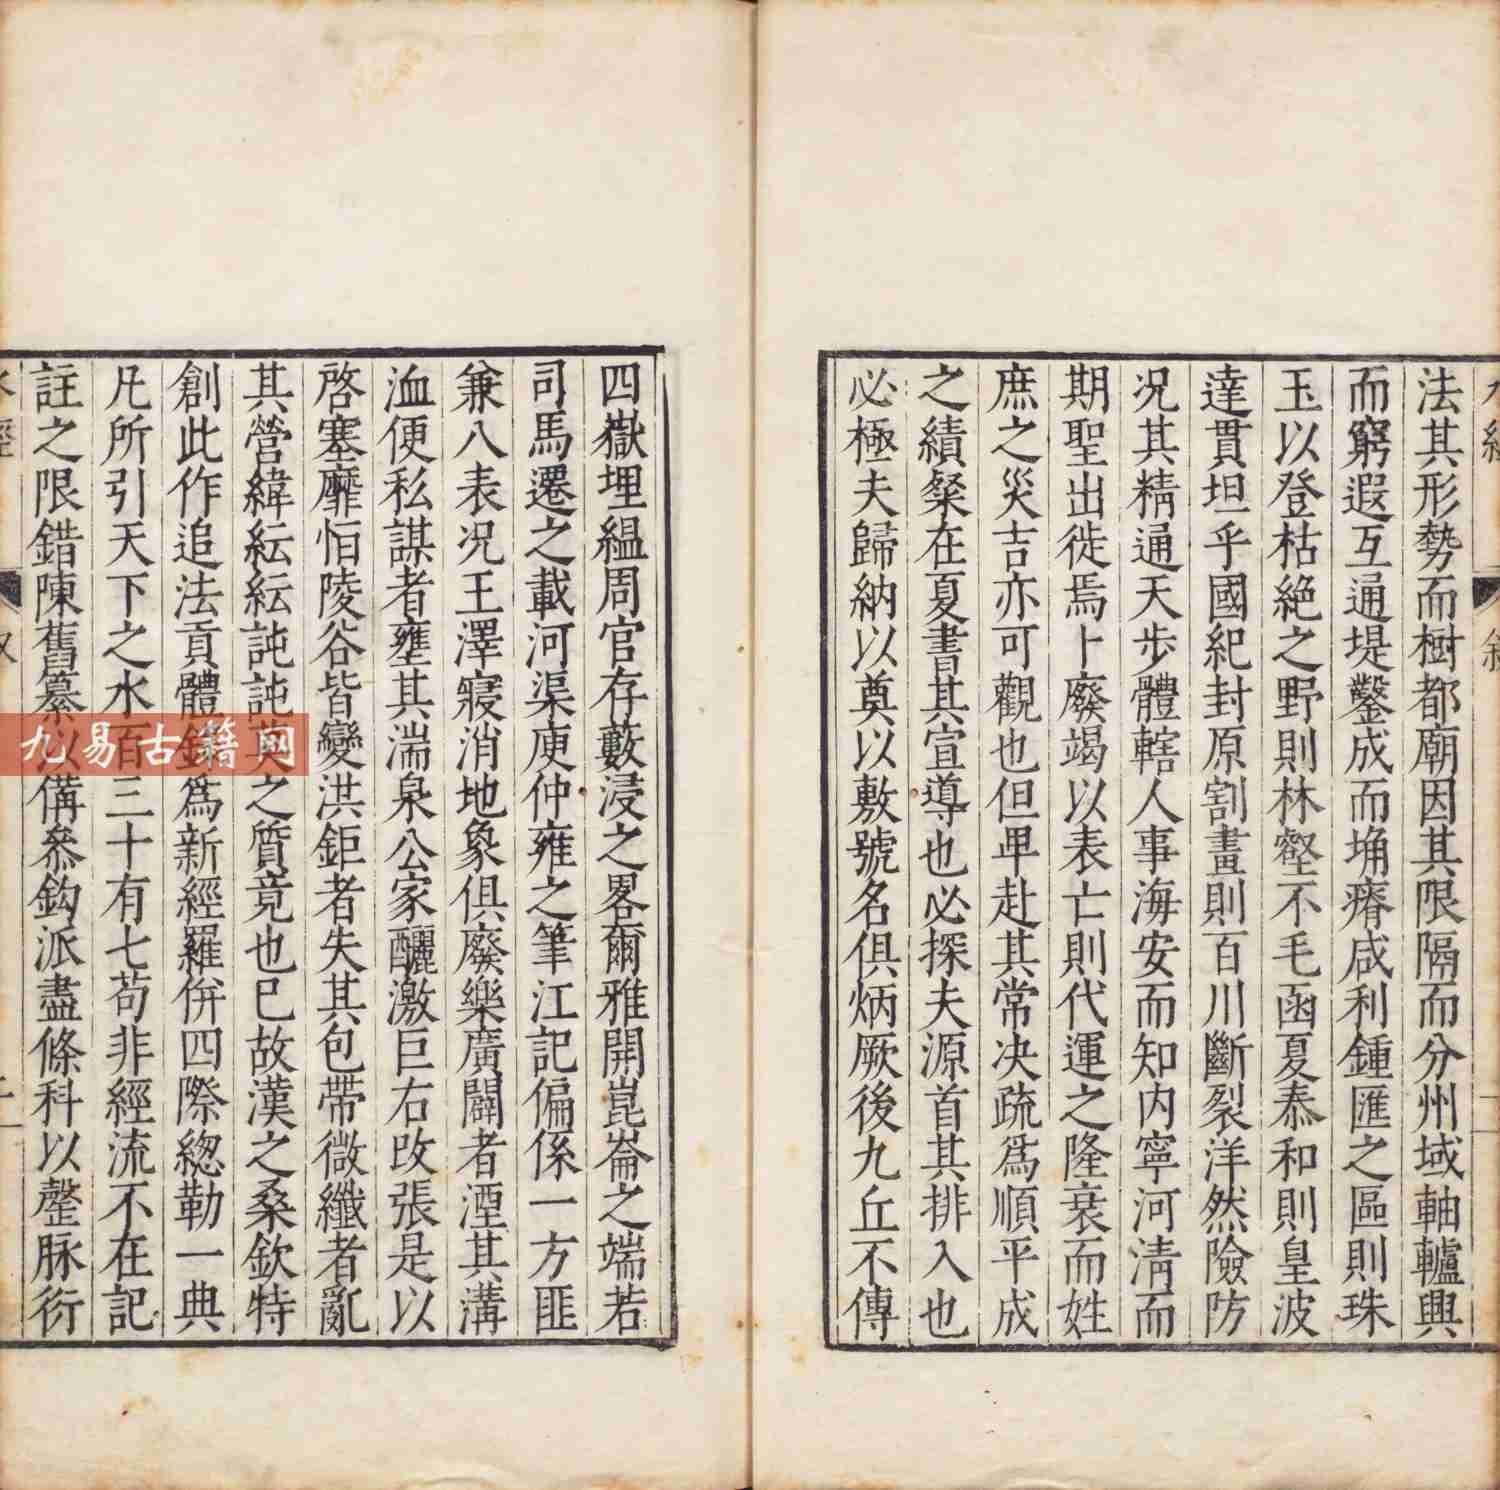 法其形勢而樹都廟因其限隔而分州域軸轤興
而窮遐互通堤鑿成而埇瘠咸利鍾匯之區則珠
玉以登枯絕之野則林壑不毛函夏泰和則皇波
達貫坦乎國紀封原割畫則百川斷裂洋然險防
况其精通天步體轄人事海安而知内寧河淸而
期聖出徙焉卜廢竭以表亡則代運之隆衰而姓
庶之災吉亦可觀也但畢赴其常决疏爲順平成
之績粲在夏書其宣導也必探夫源首其排入也
必極夫歸納以奠以敷號名俱炳厥後九丘不傳
四嶽埋緼周官存藪浸之畧爾雅開崑崙之端若
司馬遷之載河渠庾仲雍之筆江記偏係一方匪
兼八表况王澤寢消地象俱廢樂廣闢者湮其溝
洫便私謀者壅其湍泉公家釃激巨右改張是以
啓塞靡恒陵谷皆變洪鉅者失其包帶微纖者亂
其營緯紜紜訰訰莫之質竟也已故漢之桑欽特
創此作追法貢體錄爲新經羅併四際總勒一典
凡所引天下之水百三十有七苟非經流不在記
註之限錯陳舊纂以備叅鈎派盡條科以罄脉衍
水經
敘
九易古籍网